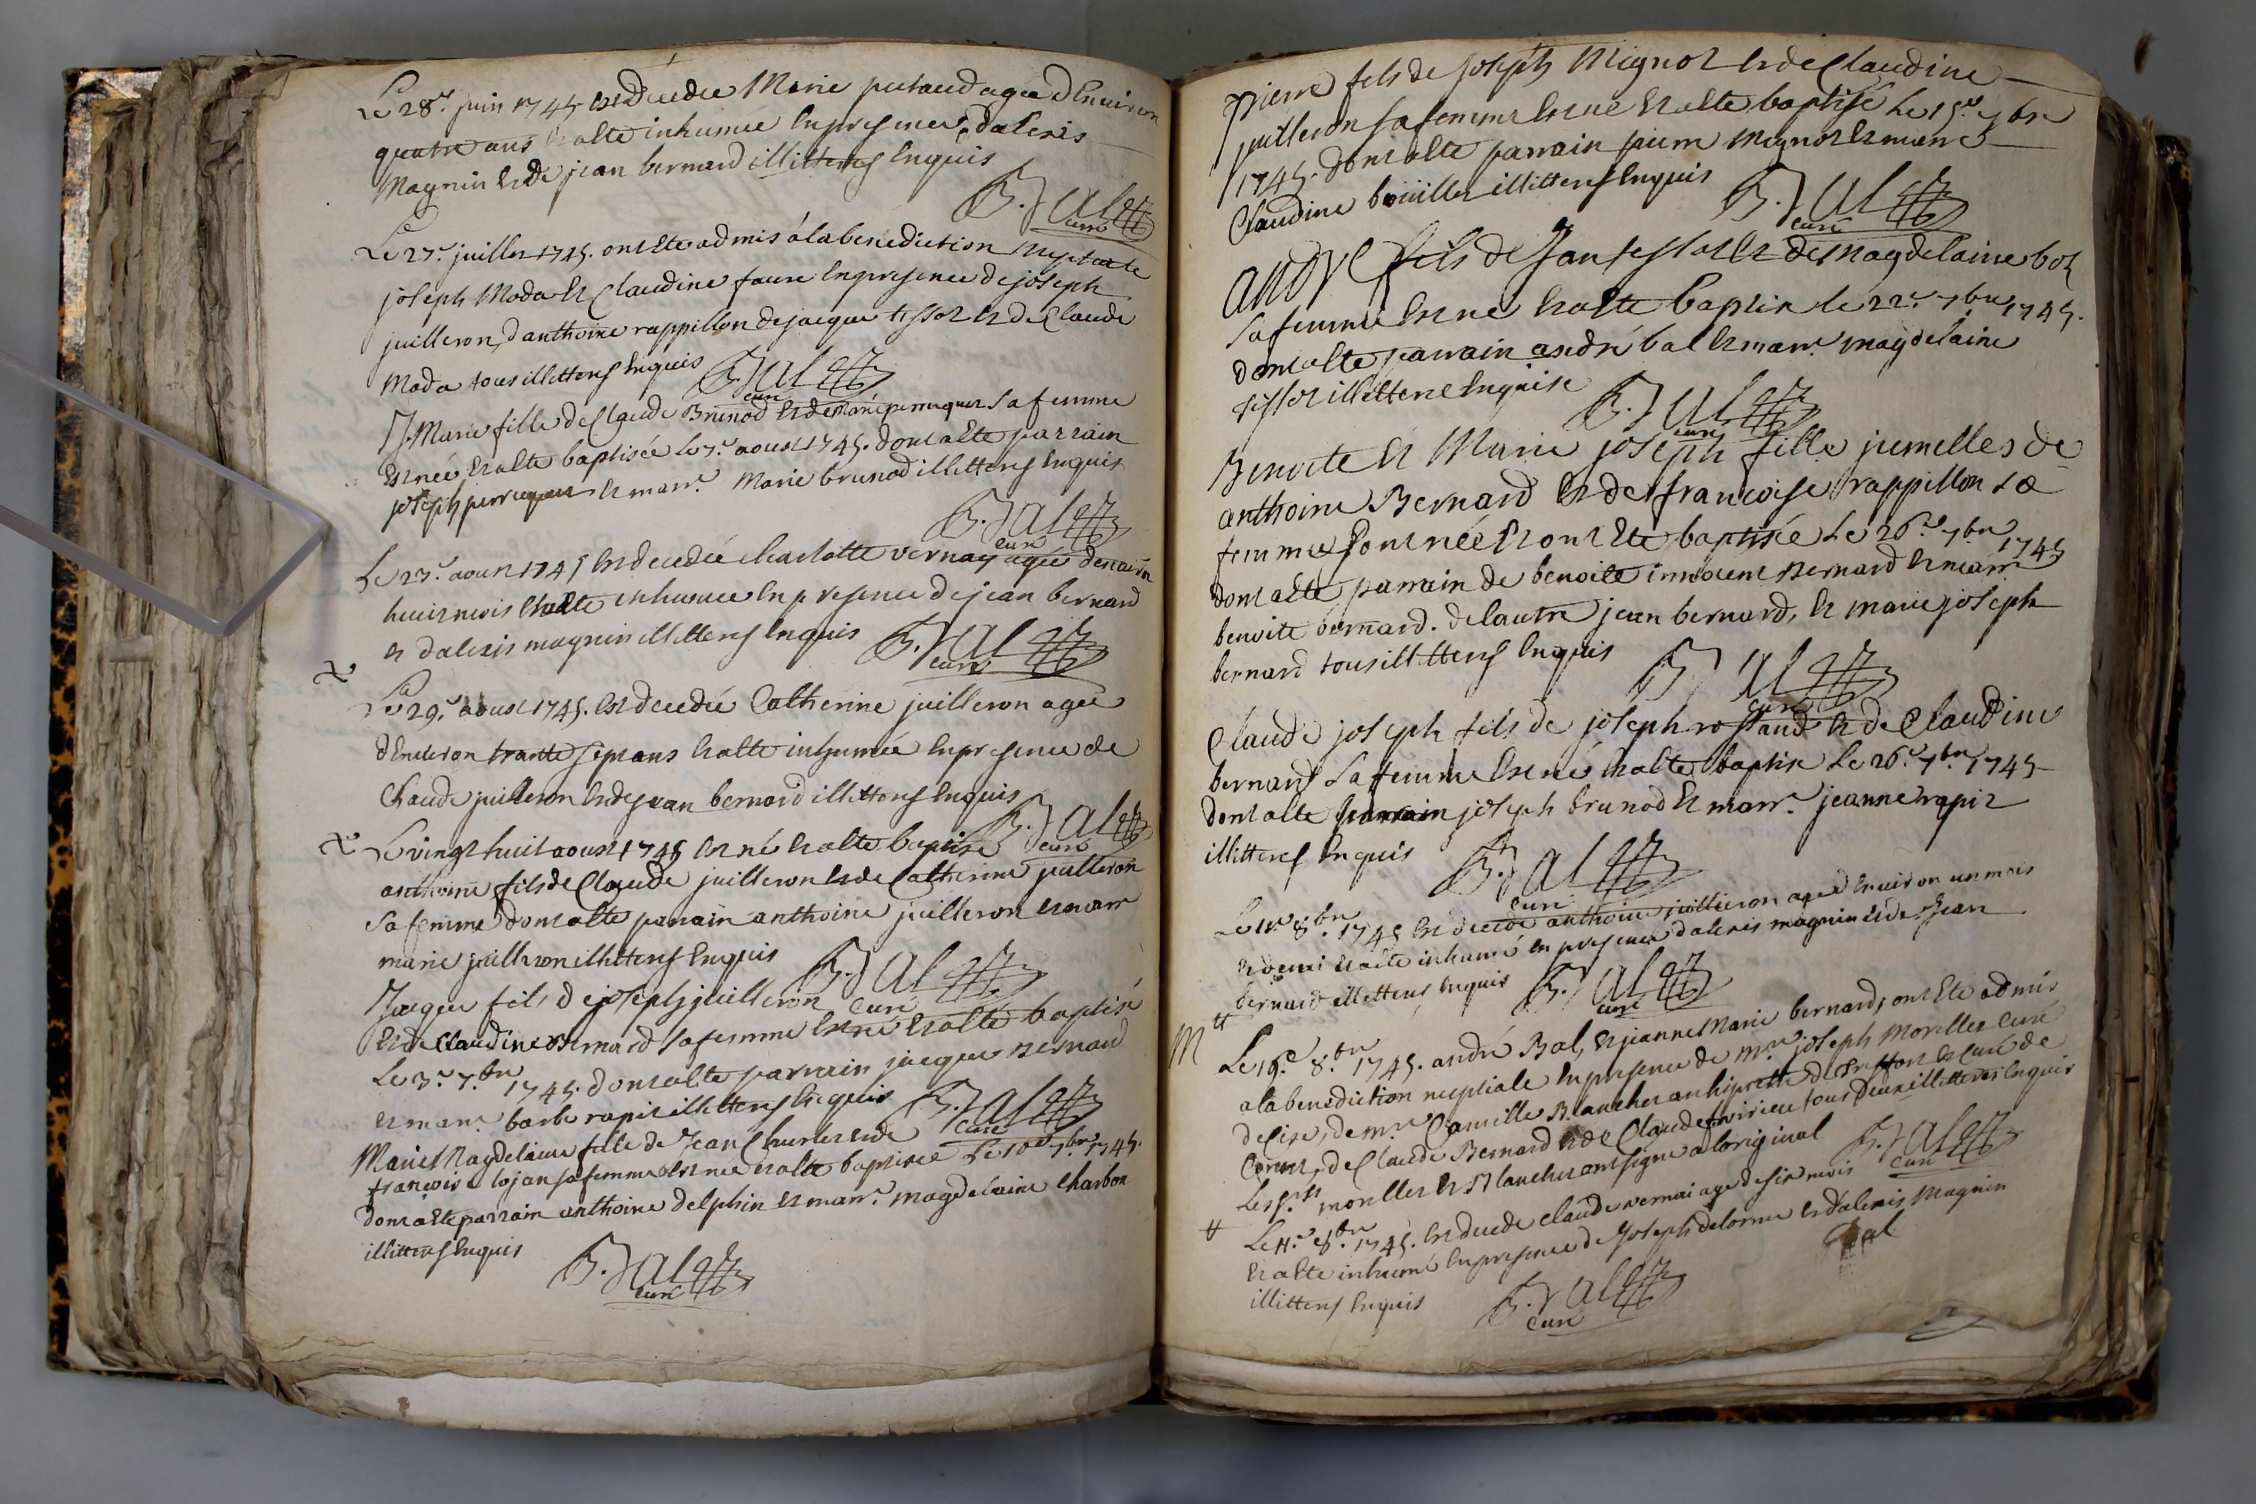 Le 28.e juin 1745 est decedee Marie putaud agée d'Environ
quatre ans et a Ete inhumée En presence d'alexis
Magnin et de jean bernard illitterés Enquis
B. Bal
curé
Le 27.e juillet 1745. ont Ete admis á la benediction nuptiale
joseph Moda et Claudine faure En presence de joseph
juilleron, d'anthoine rappillon de jacque tissot et de Claude
Moda tous illitterés Enquis B. Bal
curé
J. Marie fille de Claude Brunod et de Marie perruquet sa femme
Est née et a Ete baptisée le 7.e aoust 1745. dont a Ete parrain
joseph perruquet et marr.e Marie brunod illitterés Enquis
B. Bal
curé
Le 23.e aoust 1745 est decedée Charlotte vernay agée denviron
huit mois et a Ete inhumée En presence de jean bernard
et d'alexis magnin illitterés Enquis B. Bal
curé
Le 29.e aoust 1745. est decedée Catherine juilleron agée
d'Environ trante sept ans et a Ete inhumée En presence de
Claude juilleron et de jean bernard illitterés Enquis
B. Bal
curé
Le vingt huit aoust 1745 est né et a Ete baptisé
anthoine fils de Claude juilleron et de Catherine juilleron
sa femme dont a Ete parrain anthoine juilleron et marr
marie juilleron illitterés Enquis B. Bal
curé
Jacque fils de joseph juilleron
Et de Claudine Bernard sa femme Est né et a Eté baptisé
Le 3.e 7.bre 1745. dont a Ete parrain jacque Bernard
et marr.e barbe rapit illitterés Enquis B. Bal
curé
Marie Magdelaine fille de Jean Charles et de
francoise lojan sa femme est née et a Ete baptisée Le 10.e 7.bre 1745.
dont a Ete parrain anthoine delphin et marr.e magdelaine Charbon
illitterés Enquis
B. Bal
curé
Pierre fils de joseph Mignot et de Claudine
juilleron sa femme Est né et a Ete baptisé Le 15.e 7bre
1745. dont a Ete parrain pierre Mignot et marr.e
Claudine boüiller illitterés Enquis B. Bal
curé
André fils de Jan tissot et de Magdelaine bot
sa femme Est né et a Ete baptisé le 22.e 7bre 1745.
dont a Ete parrain andré bal et marr.e magdelaine
tissot illitterée Enquise
B. Bal
curé
Benoite et Marie joseph fille jumelles de
anthoine Bernard et de francoise rappillon sa
femme sont née et ont Ete baptisée Le 26.e 7bre 1745
dont a Ete parrain de benoite innocent Bernard et marr.e
benoite bernard. de lautre jean bernard, et marie joseph
bernard tous illitterés Enquis
B. Bal
curé
Claude joseph fils de joseph rostand et de Claudine
bernard sa femme Est né et a Ete baptisé Le 26.e 7bre 1745
dont a Ete parrain joseph brunod et marr.e jeanne rapit
illitterés Enquis B. Bal
curé
Le 11.e 8.bre 1745 est decedé anthoine juilleron agé d'Environ un mois
et demi et a Ete inhumé en presence d'alexis magnin et de Jean
bernard illitterés Enquis B. Bal
curé
M
Le 19.e 8.bre 1745. andré Bal, et jeanne Marie bernard, ont Ete admis
a la benediction nuptiale En presence de m.re joseph Morellet curé
de Cize, de m.re Camille Blanchet archiprettre de et curé de
de Claude Bernard et de Claude tous deux illitterés Enquis
Les s.rs morellet et Blanchet ont signé a loriginal B. Bal
curé
Le 11.e 8.bre 1745. est decedé Claude vernai agé de six mois
et a Ete inhumé En presence de Joseph delorme et d'alexis Magnin
illitterés Enquis B. Bal
curé
Bal